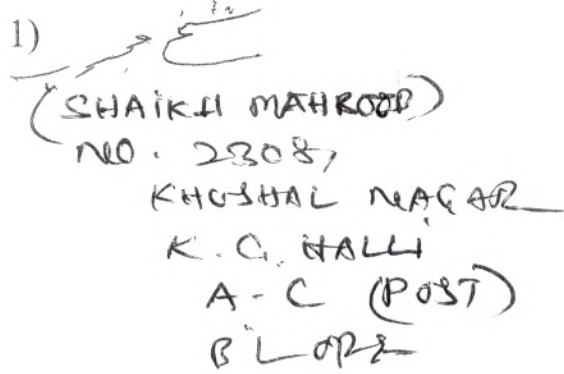 1)
(SHAIKH MAHBOOB)
NO. 2308,
KHUSHAL NAGAR
K. G. HALLI
A-C (POST)
B'LORE